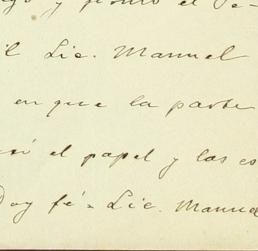 y
il Lic. Manuel
en que la parte
el papel y las es
Doy fé = Lic. Manue